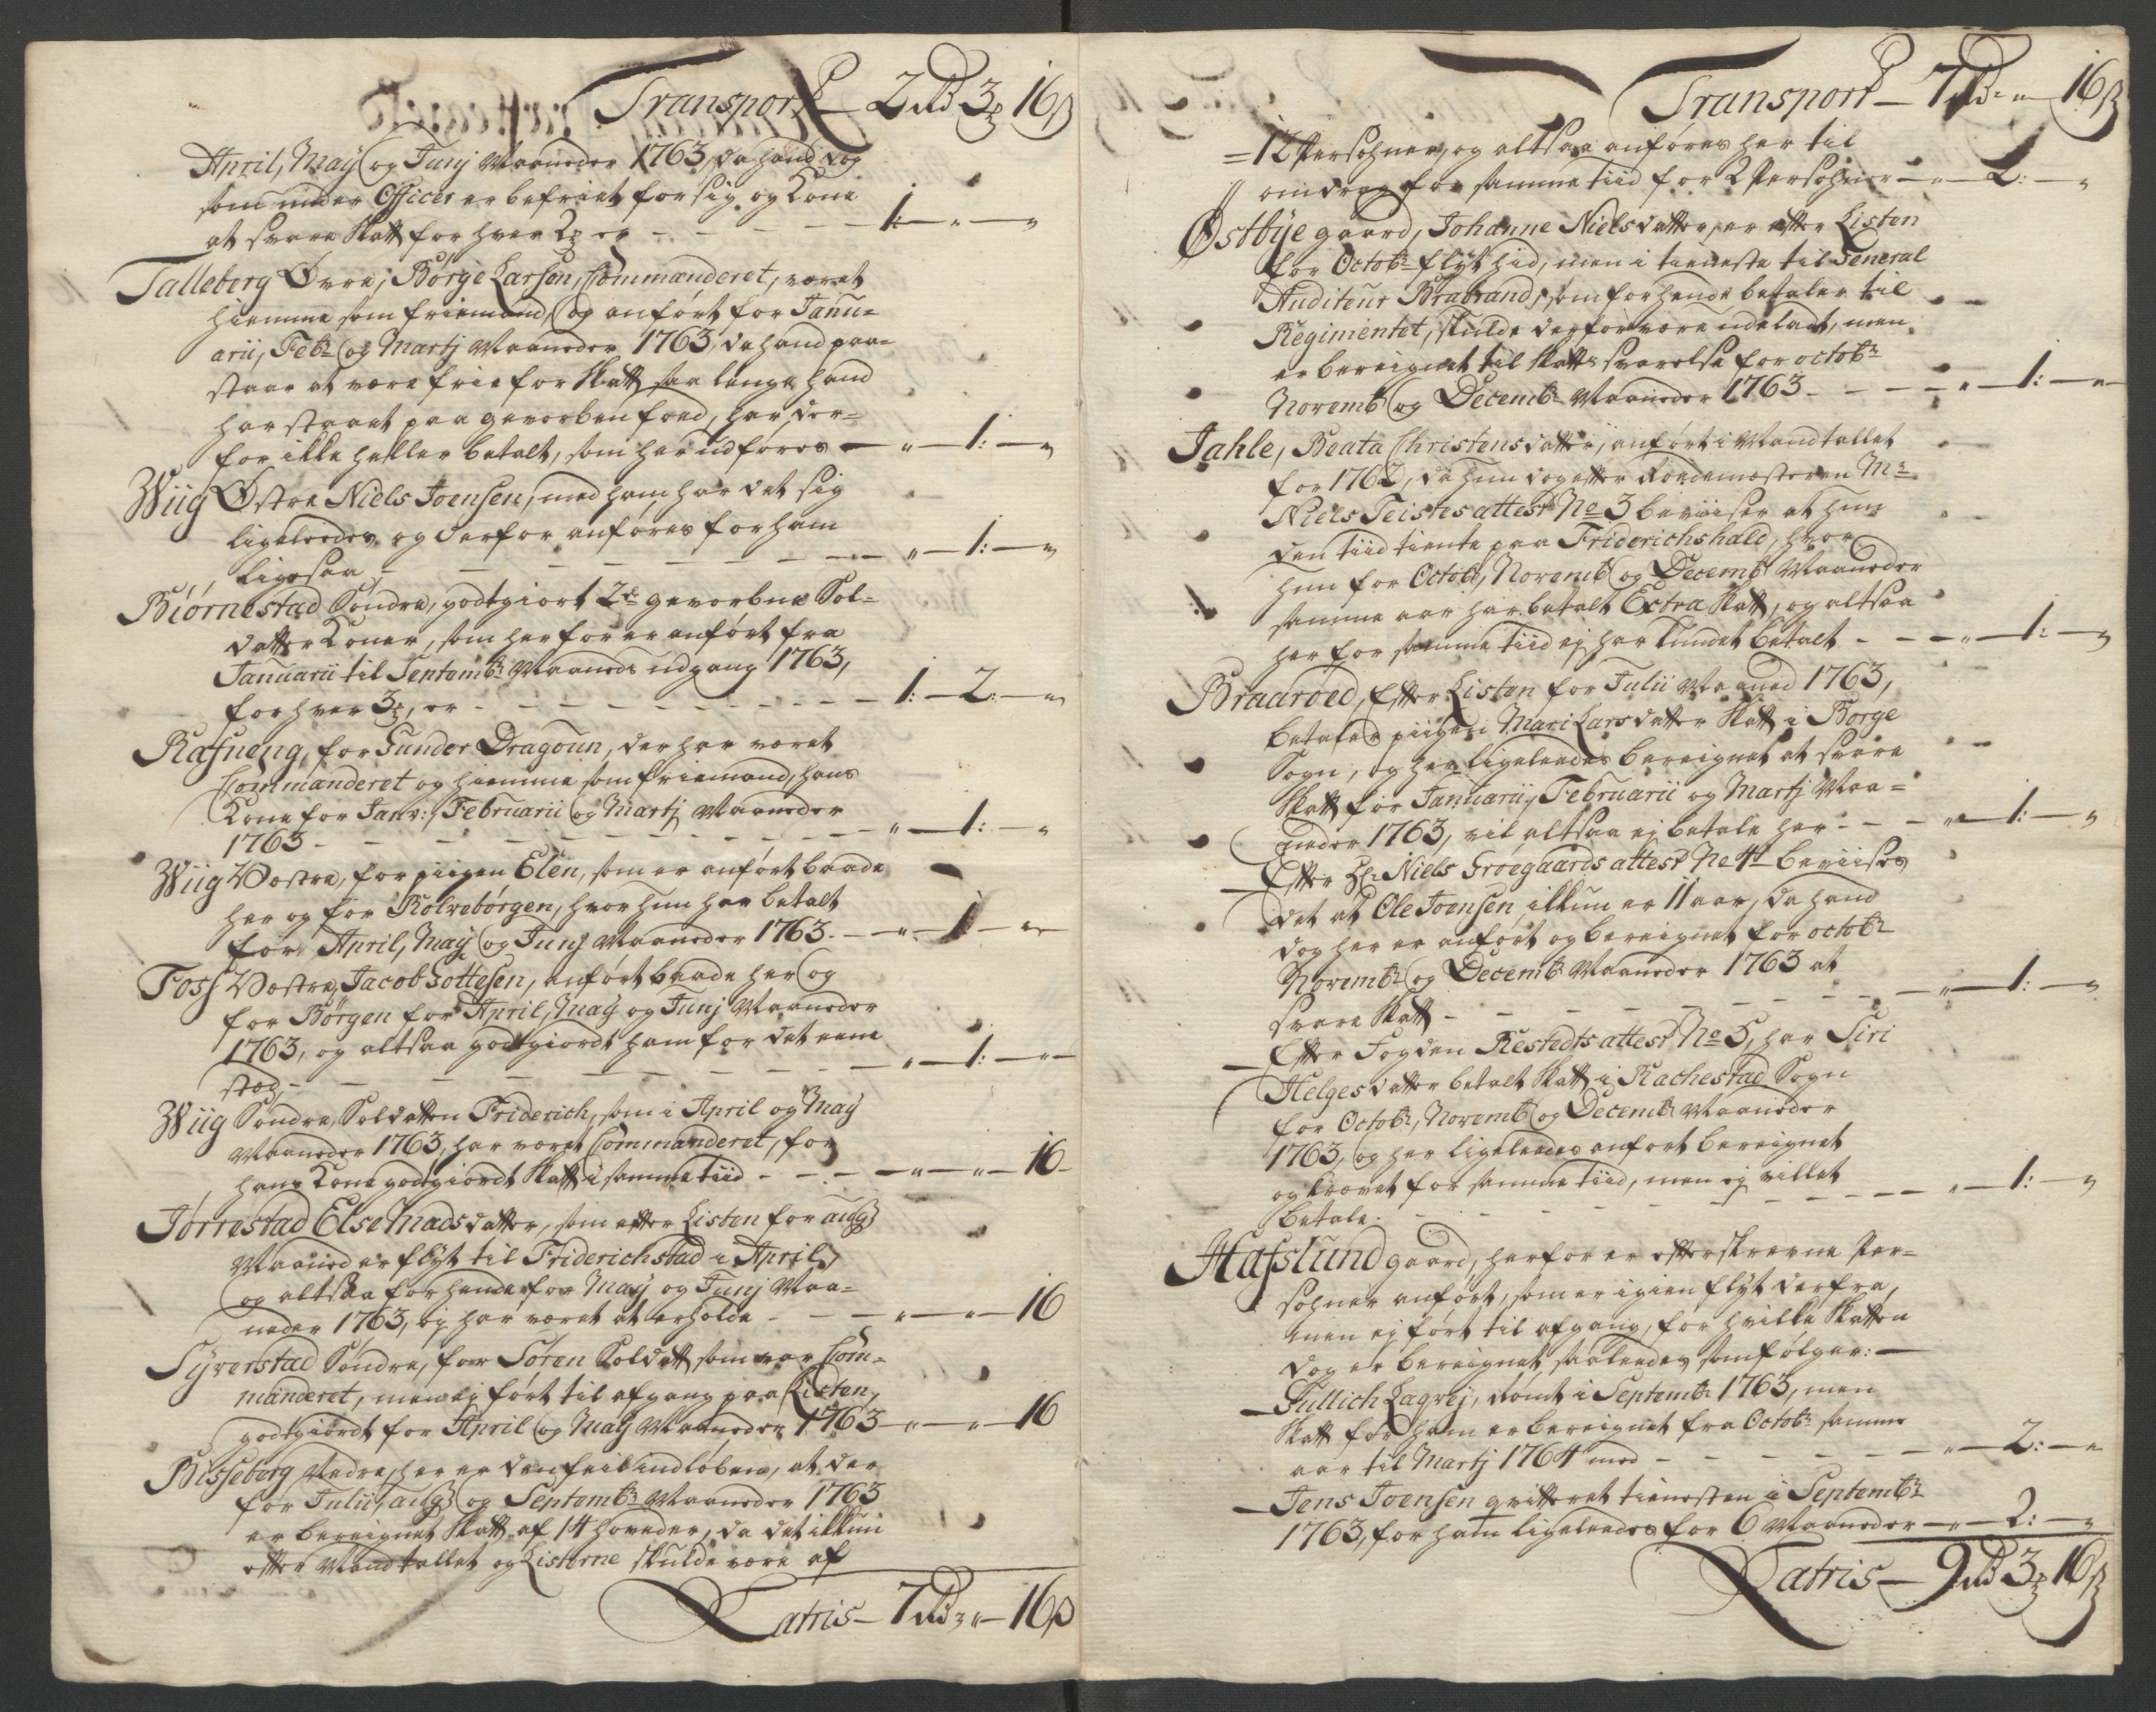 Transport - 2 rd 3 ₰ 16 ß
April, May og Junj Maaneder 1763, da hand dog
som under Officer er befriet for sig og Kone
at svare Skatt for hver 2 ₰ er - - - - - 1: " "
Talleberg Øvre, Börge Larsen, Commanderet, været
hiemme som friemand, og anfört for Janu=
arii, Febr og Martj Maaneder 1763, da hand paa=
staar at være frie for Skatt saa lenge hand
har staaet paa geworben foed, har der=
for ikke heller betalt, som her udföres - " 1: "
Wiig Østre Niels Joensen, med ham har det sig
ligeleedes og derfor anföres for ham
ligesaa - - - - - - - " 1: "
Biörnestad Söndre, godtgiort 2de geworbne Sol=
datter Koner, som her for er anfört fra
Januarii til Septembr Maaneds udgang 1763,
for hver 3 ₰, er - - - - - - 1: 2: "
Rafneng, for Gunder Dragoun, der har været
Commanderet og hiemme som friemand, hans
Kone for Janv: Februarii og Martj Maaneder
1763 - - - - - - - " 1: "
Wiig Vestre, for piigen Elen, som er anfört baade
her og for Kolvebörgen, hvor hun har betalt
for April, May og Junj Maaneder 1763. - " 1 "
Foss Vestre, Jacob Gottesen, anfört baade her og
for Börgen for April, May og Junj Maaneder
1763, og altsaa godtgiordt ham for det eene
stæd, - - - - - - - " 1: "
Wiig Söndre, Soldatten Friderich, som i April og May
Maaneder 1763, har været Commanderet, for
hans Kone godtgiordt Skatt i samme tiid - - " " 16
Jörrestad Else Madsdatter, som efter Listen for augs
Maaned er flÿt til Friderichstad i April,
og altsaa for hende for May og Junj Maa=
neder 1763, ej har været at erholde - - - " " 16
Syverstad Söndre, for Sören Soldatt som var Com=
manderet, men ej fört til afgang paa Listen,
godtgiordt for April og May Maaneder 1763 " " 16
Bisseberg Nedre, her er den feil indlöben, at der
for Julii, augs og Septembr Maaneder 1763
er bereignet Skatt af 14 hoveder, da det ikkun
efter Mandtallet og Listerne skulde være af
Latris - 7 rd " 16 ß
Transport - 7 rd " 16 ß
= 12 Persohner, og altsaa anföres her til
omdrag for samme tiid for 2 Persohner - " 2: "
Østbÿe gaard, Johanne Nielsdatter, er efter Listen
for Octobr flÿt hid, men i tieneste til General
Auditeur Brabrand, som for hende betaler til
Regimentet, skulde derfor være udeladt, men
er bereignet til Skatts svarelse for octobr
Novemb og Decembr Maaneder 1763 - - - " 1: "
Jahle, Beata Christensdatter, anfört i Mandtallet
for 1762, da hun dog efter Roedemesteren Mr
Niels Teistes attest No 3 beviiser at hun
den tiid tiente paa Friderichshald, hvor
hun for Octob, Novemb og Decemb Maaneder
samme aar har betalt Extra Skatt, og altsaa
her for samme tiid ej har kundet betalt - - - " 1: "
Braaröed, Efter Listen for Julii Maaned 1763,
betaler piigen Mari Larsdatter Skatt i Borge
Sogn, og her ligeleedes bereignet at svare
Skatt for Januarii, Februarii og Martj Maa=
neder 1763, vil altsaa ej betale her - - - " 1: "
Efter Hr Niels Gröegaards attest No 4 beviises
det at Ole Joensen ikkun er 11 aar, da hand
dog her er anfört og bereignet for octobr
Novembr og Decembr Maaneder 1763 at
svare Skatt - - - - - - - " 1: "
Efter Fogden Restedts attest No 5, har Siri
Helgesdatter betalt Skatt i Rachestad Sogn
for Octobr, Novemb og Decembr Maaneder
1763, og her ligeleedes anfört bereignet
og krævet for samme tiid, men ej villet
betale. - - - - - - - " 1: "
Hafslund gaard, herfor er efterskrevne Per=
sohner anfört, som er igien flÿt derfra,
men ej fört til afgang, for hvilke Skatten
dog er bereignet saaleedes som fölger: -
Tullich Lagvej, römt i Septembr 1763, men
Skatt for ham er bereignet fra Octobr samme
aar til Martj 1764 med - - - - - - " 2: "
Jens Joensen qvitteret tienesten i Septembr
1763, for ham ligeleedes for 6 Maaneder - " 2: "
Latris - 9 rd 3 ₰ 16 ß